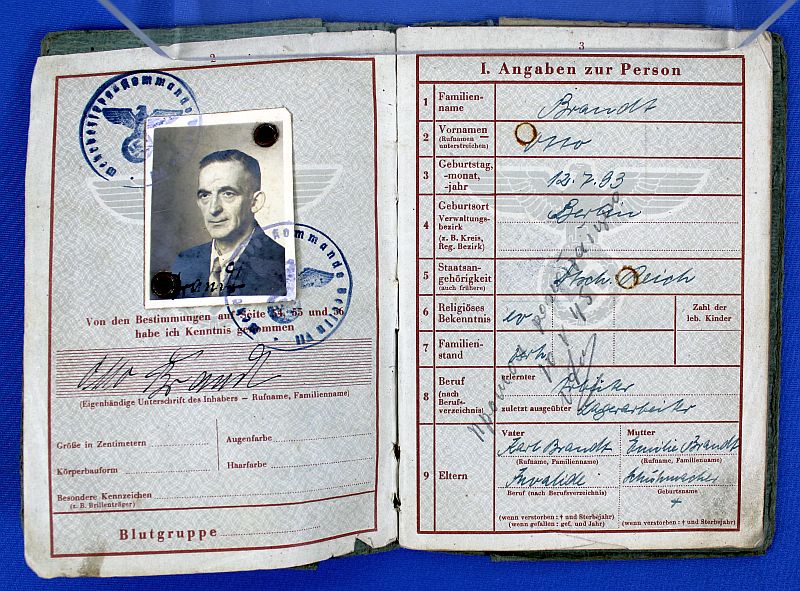 2
Wehrbezirkskommando
Kommando Berlin VII
Von den Bestimmungen auf Seite 53, 55 und 56
habe ich Kenntnis genommen
Otto Brandt
(Eigenhändige Unterschrift des Inhabers – Rufname, Familienname)
Größe in Zentimetern
Augenfarbe
Körperbauform
Haarfarbe
Besondere Kennzeichen
(z. B. Brillenträger)
Blutgruppe
3
I. Angaben zur Person
1 Familien-
name
Brandt
2 Vornamen
(Rufnamen
unterstreichen)
Otto
3 Geburtstag,
-monat,
-jahr
12.7.93
4 Geburtsort
Verwaltungs-
bezirk
(z. B. Kreis,
Reg. Bezirk)
Berlin
5 Staatsan-
gehörigkeit
(auch frühere)
Dtsch. Reich
6 Religiöses
Bekenntnis
ev
Zahl der
leb. Kinder
7 Familien-
stand
verh.
8 Beruf
(nach
Berufs-
verzeichnis)
erlernter
Arbeiter
zuletzt ausgeübter
Lagerarbeiter
9 Eltern
Vater
Karl Brandt
(Rufname, Familienname)
Invalide
Beruf (nach Berufsverzeichnis)
(wenn verstorben: † und Sterbejahr)
(wenn gefallen: gef, und Jahr)
Mutter
Emilie Brandt
(Rufname, Familienname)
Schuhmacher
Geburtsname
†
(wenn verstorben: † und Sterbejahr)